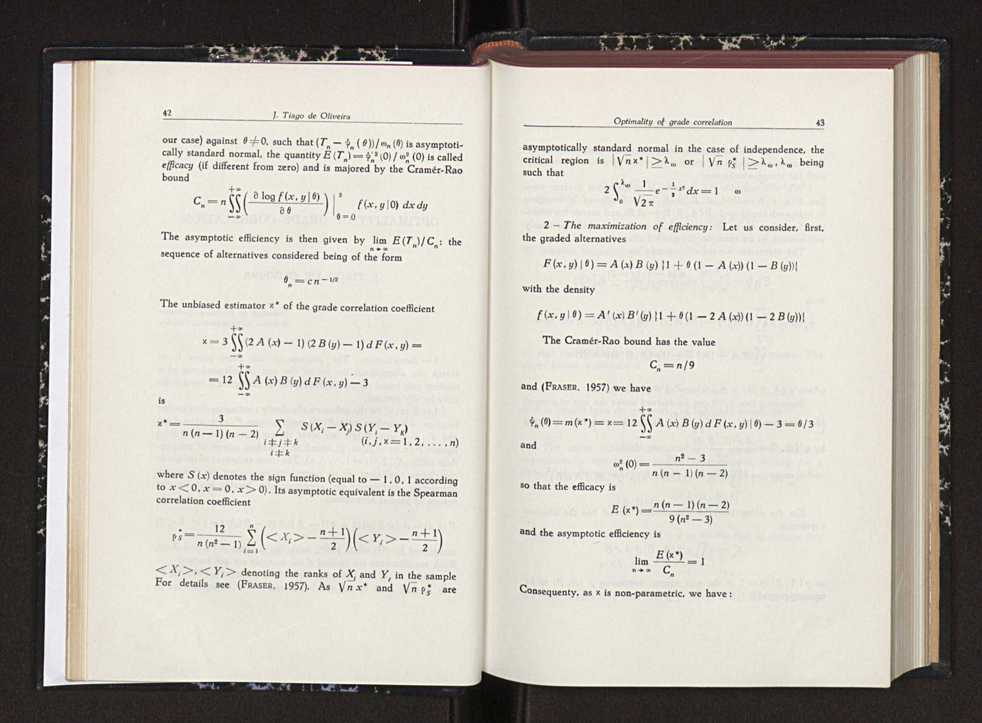 42 J. Tiago de Oliveira
our case) against θ ≠ 0, such that (T_n − ψ_n (θ)) / ω_n (θ) is asymptoti-
cally standard normal, the quantity E (T_n) = ψ'²_n (0) / ω²_n (0) is called
efficacy (if different from zero) and is majored by the Cramér-Rao
bound
C_n = n ∬_{−∞}^{+∞} ( ∂ log f (x, y | θ) / ∂ θ ) |²_{θ = 0} f (x, y | 0) dx dy
The asymptotic efficiency is then given by lim_{n → ∞} E (T_n) / C_n : the
sequence of alternatives considered being of the form
θ_n = c n^{−1/2}
The unbiased estimator ϰ* of the grade correlation coefficient
ϰ = 3 ∬_{−∞}^{+∞} (2 A (x) − 1) (2 B (y) − 1) d F (x, y) =
= 12 ∬_{−∞}^{+∞} A (x) B (y) d F (x, y) − 3
is
ϰ* = 3 / n (n − 1) (n − 2) Σ_{i ≠ j ≠ k, i ≠ k} S (X_i − X_j) S (Y_i − Y_K) (i, j, ϰ = 1, 2, . . . , n)
where S (x) denotes the sign function (equal to — 1, 0, 1 according
to x < 0, x = 0, x > 0). Its asymptotic equivalent is the Spearman
correlation coefficient
ρ*_S = 12 / n (n² − 1) Σ_{i = 1}^{n} ( < X_i > − (n + 1) / 2 ) ( < Y_i > − (n + 1) / 2 )
< X_i >, < Y_i > denoting the ranks of X_i and Y_i in the sample
For details see (FRASER, 1957). As √n x* and √n ρ*_S are
Optimality of grade correlation 43
asymptotically standard normal in the case of independence, the
critical region is | √n ϰ* | ≥ λ_ω or | √n ρ*_S | ≥ λ_ω, λ_ω being
such that
2 ∫_0^{λ_ω} 1 / √2 π e^{− 1/2 x²} dx = 1 ω
2 — The maximization of efficiency: Let us consider, first,
the graded alternatives
F (x, y) | θ) = A (x) B (y) {1 + θ (1 − A (x)) (1 − B (y))}
with the density
f (x, y | θ) = A' (x) B' (y) {1 + θ (1 − 2 A (x)) (1 − 2 B (y))}
The Cramér-Rao bound has the value
C_n = n / 9
and (FRASER, 1957) we have
ψ_n (θ) = m (ϰ*) = ϰ = 12 ∬_{−∞}^{+∞} A (x) B (y) d F (x, y) | θ) − 3 = θ / 3
and
ω²_n (0) = n² − 3 / n (n − 1) (n − 2)
so that the efficacy is
E (ϰ*) = n (n − 1) (n − 2) / 9 (n² − 3)
and the asymptotic efficiency is
lim_{n → ∞} E (ϰ*) / C_n = 1
Consequenty, as ϰ is non-parametric, we have :